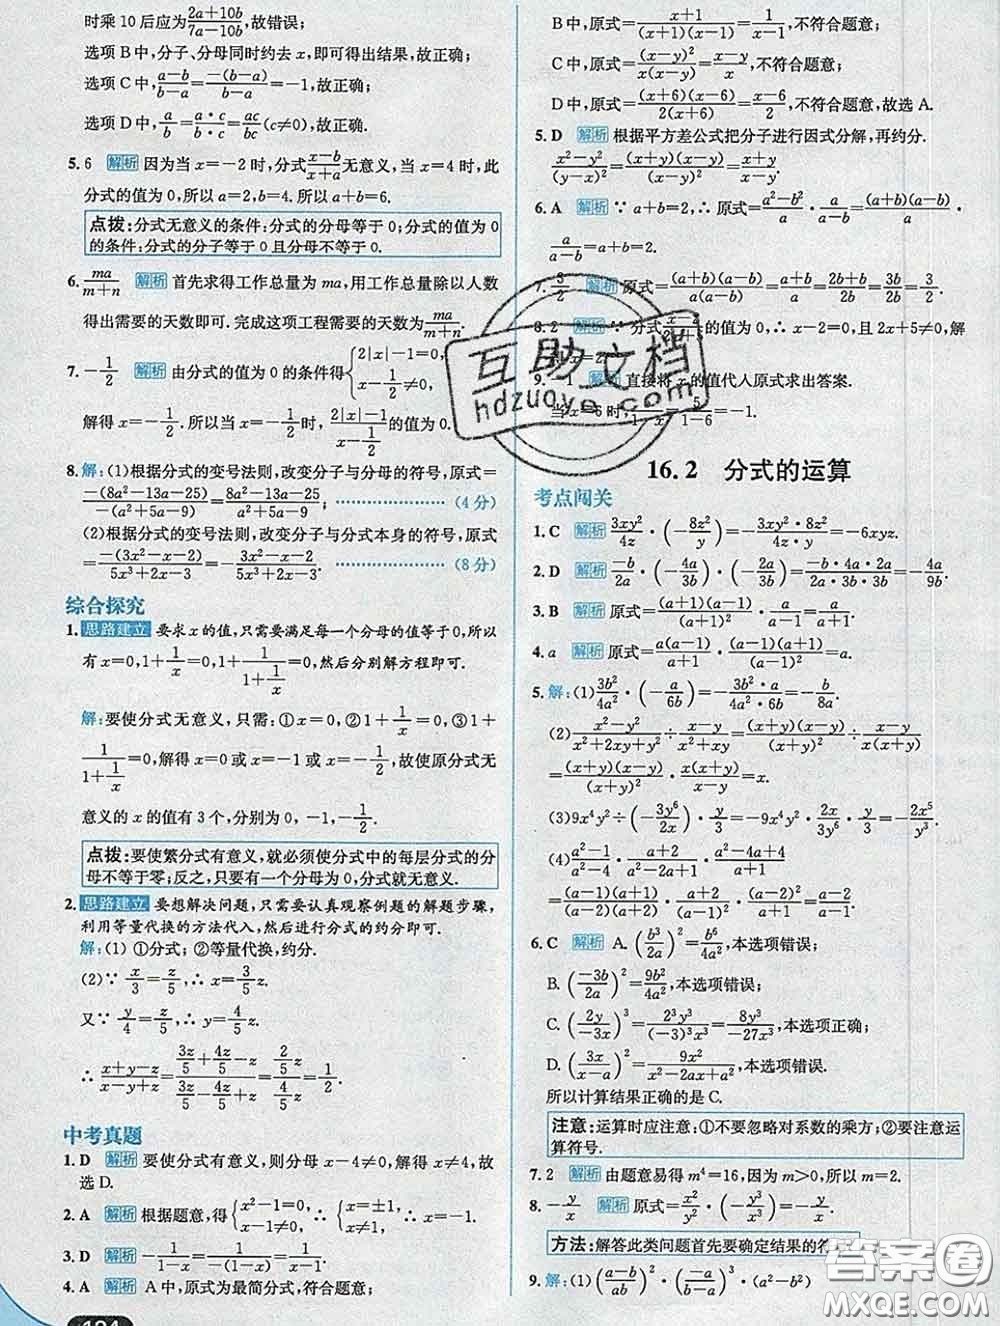 时乘 10 后应为(2a+10b)/(7a-10b),故错误;
选项 B 中,分子、分母同时约去 x,即可得出结果,故正确;
选项 C 中,(a-b)/(b-a)=-(b-a)/(b-a)=-1,故正确;
选项 D 中,a/b=(a·c)/(b·c)=ac/bc(c≠0),故正确.
5. 6 解析 因为当 x=-2 时,分式(x-b)/(x+a)无意义,当 x=4 时,此
分式的值为 0,所以 a=2,b=4.所以 a+b=6.
点拨:分式无意义的条件:分式的分母等于 0;分式的值为 0
的条件:分式的分子等于 0 且分母不等于 0.
6. ma/(m+n) 解析 首先求得工作总量为 ma,用工作总量除以人数
得出需要的天数即可.完成这项工程需要的天数为ma/(m+n).
7. -1/2 解析 由分式的值为 0 的条件得{2|x|-1=0, x-1/2≠0,
解得 x=-1/2.所以当 x=-1/2时,(2|x|-1)/(x-1/2)的值为 0.
8. 解:(1)根据分式的变号法则,改变分子与分母的符号,原式=
-(8a²-13a-25)/-(a²+5a-9)=(8a²-13a-25)/(a²+5a-9). (4 分)
(2)根据分式的变号法则,改变分子与分式本身的符号,原式
=-(3x²-x-2)/(5x³+2x-3)=-(3x²-x-2)/(5x³+2x-3). (8 分)
综合探究
1. 思路建立 要求 x 的值,只需要满足每一个分母的值等于 0,所以
有 x=0,1+1/x=0,1+1/(1+1/x)=0,然后分别解方程即可.
解:要使分式无意义,只需:①x=0,②1+1/x=0,③1+
1/(1+1/x)=0.解得 x=0 或 x=-1 或 x=-1/2,故使原分式无
意义的 x 的值有 3 个,分别为 0,-1,-1/2.
点拨:要使繁分式有意义,就必须使分式中的每层分式的分
母不等于零;反之,只要有一个分母为 0,分式就无意义.
2. 思路建立 要想解决问题,只需要认真观察例题的解题步骤,
利用等量代换的方法代入,然后进行分式的约分即可.
解:(1) ①分式;②等量代换,约分.
(2)∵x/3=z/5,∴x=3/5z.
又∵y/4=z/5,∴y=4/5z.
∴(x+y-z)/(x-y+z)=(3z/5+4/5z-z)/(3z/5-4/5z+z)=(2/5z)/(4/5z)=1/2.
中考真题
1. D 解析 要使分式有意义,则分母 x-4≠0,解得 x≠4,故
选 D.
2. A 解析 根据题意,得{x²-1=0, x-1≠0,∴{x²=1, x≠1,∴x=-1.
3. D 解析 -1/(1-x)=1/-(1-x)=1/(x-1).
4. A 解析 A 中,原式为最简分式,符合题意;
B 中,原式=(x+1)/((x+1)(x-1))=1/(x-1),不符合题意;
C 中,原式=(x-y)²/(x(x-y))=(x-y)/x,不符合题意;
D 中,原式=((x+6)(x-6))/(2(x+6))=(x-6)/2,不符合题意,故选 A.
5. D 解析 根据平方差公式把分子进行因式分解,再约分.
(x²-y²)/(y-x)²=((x+y)(x-y))/(x-y)²=(x+y)/(x-y).
6. A 解析 ∵a+b=2,∴原式=(a²-b²)/a·a/(a-b)=((a+b)(a-b))/a·
a/(a-b)=a+b=2.
7. 3/2 解析 原式=((a+b)(a-b))/(a(a-b))=(a+b)/a=(2b+b)/2b=3b/2b=3/2.
8. 2 解析 ∵分式 的值为 0,∴x-2=0,且 2x+5≠0,解
得 x=2.
9. -1 解析 直接将 x 的值代入原式求出答案.
当 x=6 时,5/(1-x)=5/(1-6)=-1.
16.2 分式的运算
考点闯关
1. C 解析 3xy²/4z·(-8z²/y)=-(3xy²·8z²)/(4z·y)=-6xyz.
2. D 解析 -b/2a·(-4a/3b)·(-2a/3b)=(-b·4a·2a)/(2a·3b·3b)=-4a/9b.
3. B 解析 原式=((a+1)(a-1))/a²·a/(a-1)=(a+1)/a.
4. a 解析 原式=(a(a-1))/(a+1)·((a+1)(a-1))/(a-1)²=a.
5. 解:(1)3b²/4a²·(-a/6b)=-(3b²·a)/(4a²·6b)=-b/8a.
(2)(x²-y²)/(x²+2xy+y²)÷(x-y)/(x²+xy)=((x+y)(x-y))/(x+y)²÷(x-y)/(x(x+y))
=((x+y)(x-y))/(x+y)²·(x(x+y))/(x-y)=x.
(3)9x⁴y²÷(-3y⁶/2x)·y/3=-9x⁴y²·2x/3y⁶·y/3=-2x⁵/y³.
(4)(a²-1)/(a²-4)·(a+2)/(a+1)÷(a²-a)/(a²-4a+4)
=((a+1)(a-1))/((a+2)(a-2))·(a+2)/(a+1)·(a-2)²/(a(a-1))=(a-2)/a.
6. C 解析 A.(b³/2a)²=b⁶/4a²,本选项错误;
B.(-3b/2a)²=9b²/4a²,本选项错误;
C.(2y/-3x)³=2³y³/((-3)³x³)=8y³/-27x³,本选项正确;
D.(3x/(x-a))²=9x²/(x²-2ax+a²),本选项错误.
所以计算结果正确的是 C.
注意:运算时应注意:①不要忽略对系数的乘方;②要注意运
算符号.
7. 2 解析 由题意易得 m⁴=16,因为 m>0,所以 m=2.
8. -y/x 解析 原式=x²/y²·(-y³/x³)=-y/x.
方法:解答此类问题首先要确定结果的符
9. 解:(1)((a-b)/ab)²·(-a/(b-a))³·(a²-b²)
互助文档
hdzuoye.com
答案圈
MXQE.COM